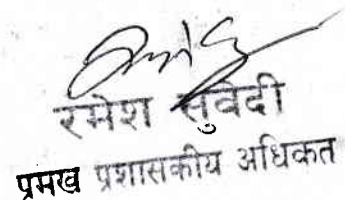 रमेश सुवेदी
प्रमख प्रशासकीय अधिकत